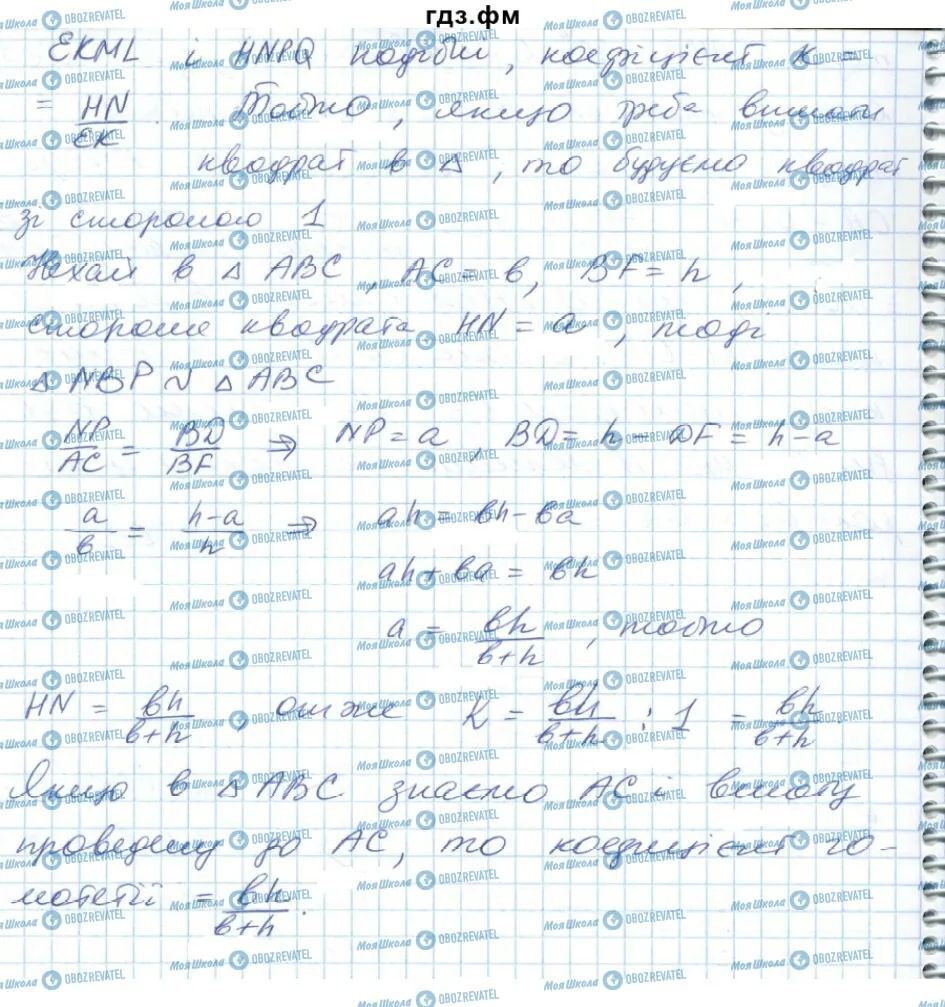 гдз.фм
EKML і HNPQ подібні, коефіцієнт K =
= HN/EK. Тобто, якщо треба вписати
квадрат в △, то будуємо квадрат
зі стороною 1
Нехай в △ ABC, AC = в, BF = h,
сторона квадрата HN = a, тоді
△ NBP ∾ △ ABC
NP/AC = BD/BF ⇒ NP = a, BD = h - DF = h - a
a/в = h-a/h ⇒ ah = вh - вa
ah + вa = вh
a = вh/в+h, тобто
HN = вh/в+h, отже K = вh/в+h : 1 = вh/в+h
Якщо в △ ABC знаємо AC і висоту
проведену до AC, то коефіцієнт го-
мотетії = вh/в+h.
МояШкола OBOZREVATEL